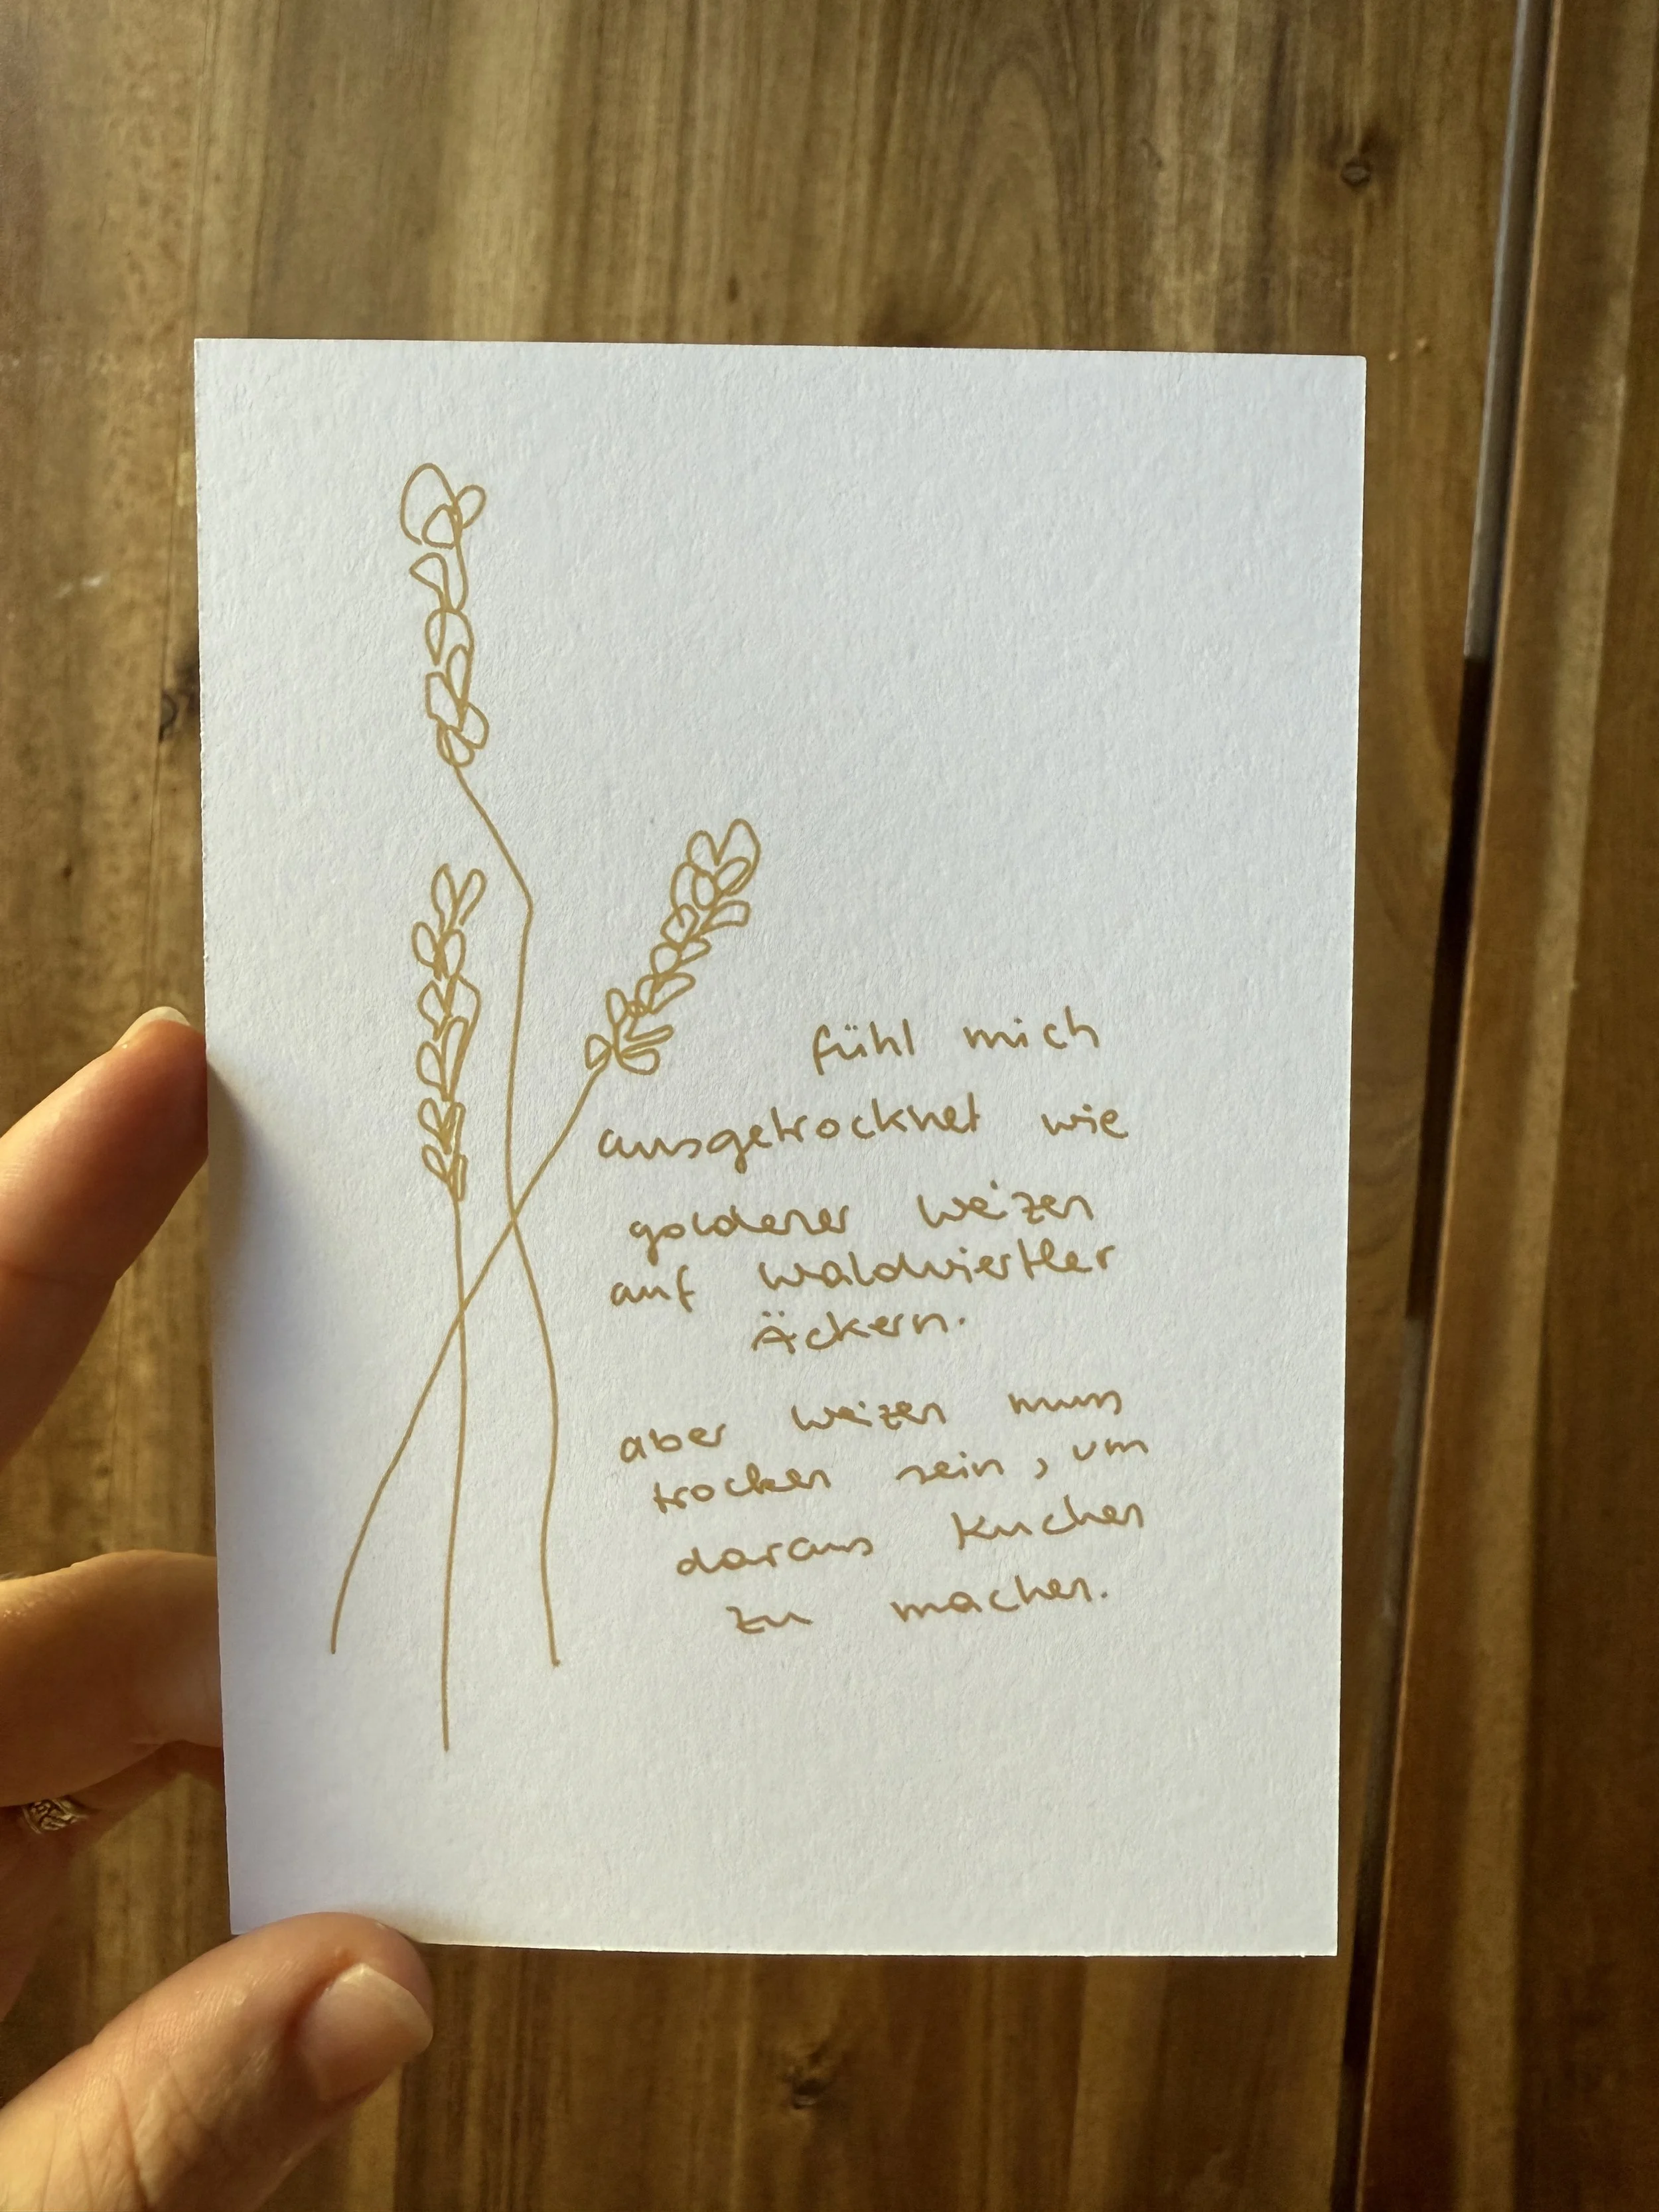 fühl mich
ausgetrocknet wie
goldener weizen
auf waldviertler
Äckern.
aber weizen muss
trocken sein, um
daraus kuchen
zu machen.